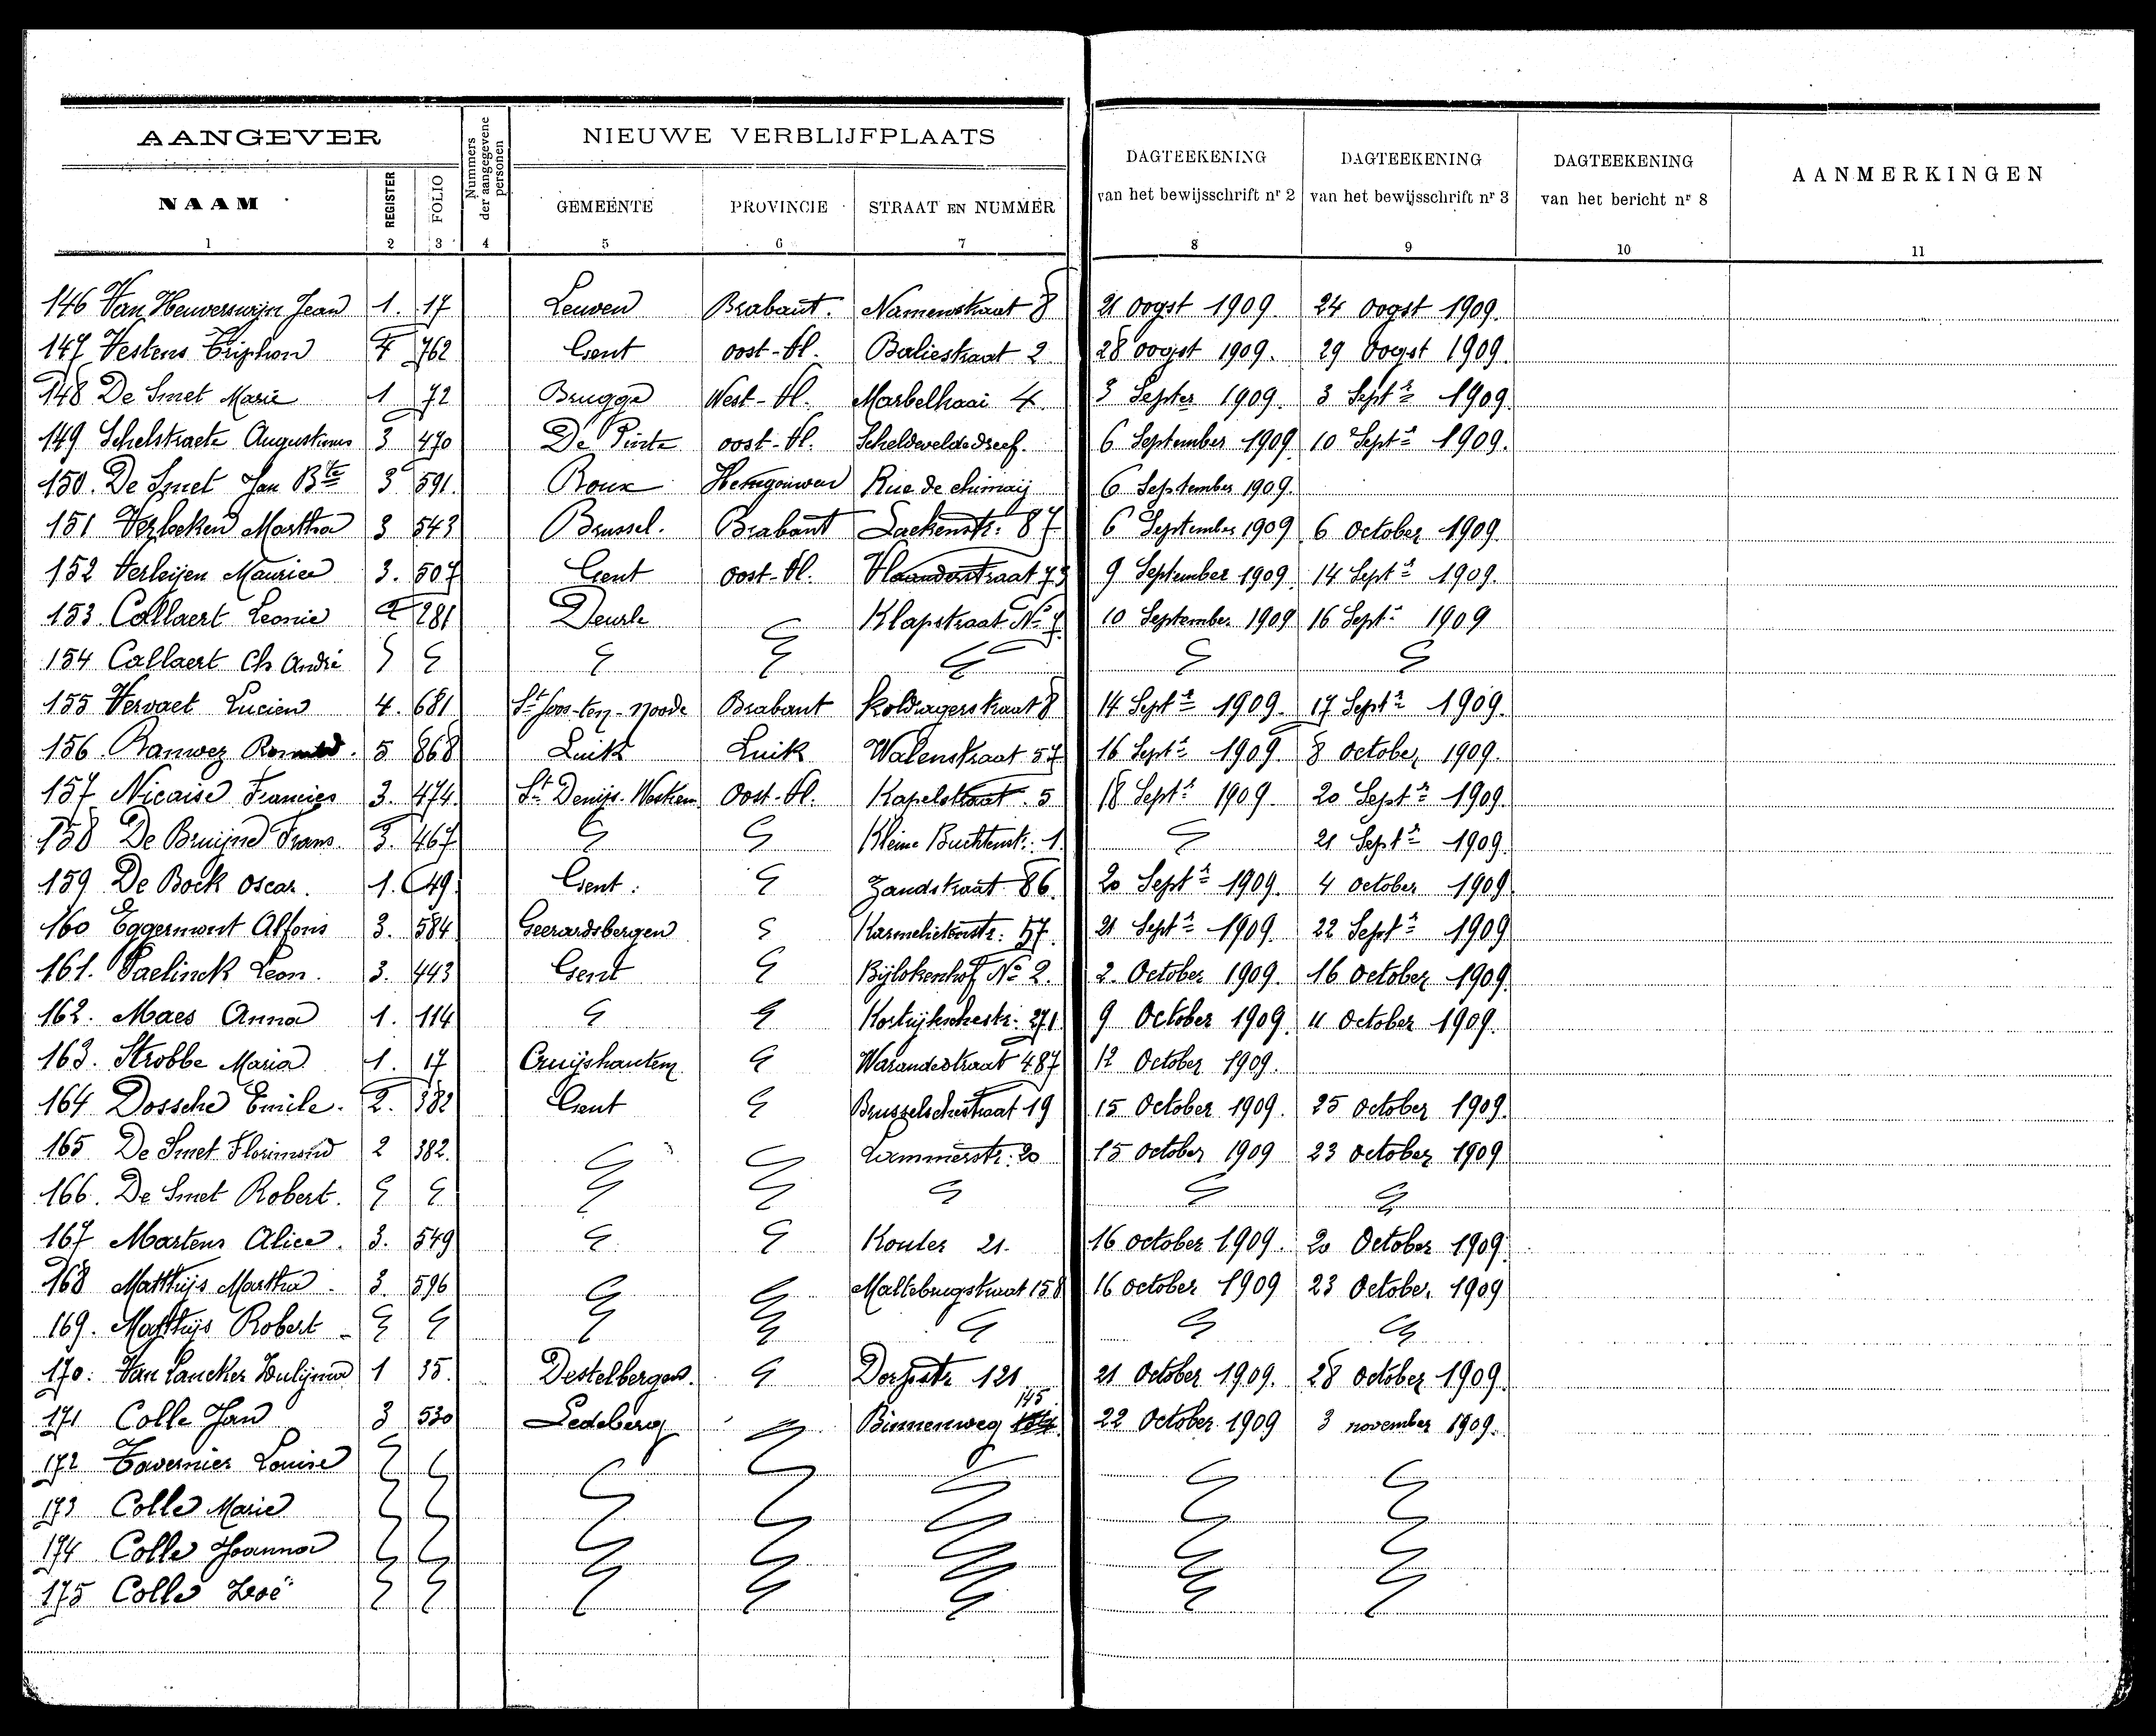 AANGEVER
Nummers der aangegevene personen
NIEUWE VERBLIJFPLAATS
DAGTEEKENING van het bewijsschrift nr 2
DAGTEEKENING van het bewijsschrift nr 3
DAGTEEKENING van het bericht nr 8
AANMERKINGEN
NAAM REGISTER FOLIO GEMEENTE PROVINCIE STRAAT EN NUMMER
1 2 3 4 5 6 7 8 9 10 11
146 Van Heuverswijn Jean 1. 17 Leuven Brabant. Namenstraat 8 21 oogst 1909. 24 oogst 1909.
147 Vestens Triphon 4 762 Gent oost-Vl. Baliestraat 2 28 oogst 1909. 29 Oogst 1909.
148 De Smet Marie 1 72 Brugge West-Vl. 4. 3 Septer 1909. 3 Septr 1909.
149 Schelstraete Augustinus 3 470 De Pinte oost-Vl. Scheldeveldedreef. 6 September 1909 10 Septr 1909.
150. De Smet Jan Bte 3 591. Roux Henegouwen Rue de chimaij 6 September 1909.
151 Verbeken Martha 3 543 Brussel. Brabant Laekenstr: 87 6 September 1909 6 October 1909.
152 Verleijen Maurice 3. 507 Gent oost-Vl. Vlaanderstraat 73 9 September 1909 14 Septr 1909.
153. Callaert Leonie 2 281 Deurle Klapstraat No 7. 10 September 1909 16 Septr 1909
154 Callaert Ch André
155 Vervaet Lucien 4. 681 St Joos-ten-Noode Brabant Koldragerstraat 8 14 Septr 1909. 17 Septr 1909.
156. Banwez 5 868 Luik Luik Walenstraat 57 16 Septr 1909 8 october 1909.
157 Nicaise Francies 3. 474. St Denijs-Westrem Oost-Vl. Kapelstraat. 5 18 Septr 1909. 20 Septr 1909.
158 De Bruijne Frans. 3. 467 Kleine Buchtenstr: 1. 21 Septr 1909.
159 De Bock Oscar. 1. 49. Gent. Zandstraat 86. 20 Septr 1909. 4 october 1909
160 Eggermont Alfons 3. 584 Geerardsbergen Karmelietenstr: 57. 21 Septr 1909. 22 Septr 1909
161. Paelinck Leon. 3. 443 Gent Bijlokenhof No 2. 2. October 1909. 16 October 1909.
162. Maes Anna 1. 114 Kortrijkschestr: 271 9 October 1909. 11 October 1909.
163. Strobbe Maria 1. 17 Cruijshautem Warandestraat 487 12 October 1909.
164 Dossche Emile. 2. 382 Gent Brusselschestraat 19 15 October 1909. 25 october 1909.
165 De Smet Florimond 2 382. Lammerstr: 20 15 october 1909 23 october 1909
166. De Smet Robert.
167 Martens Alice. 3. 549 Kouter 21. 16 october 1909. 20 October 1909.
168 Matthijs Martha. 3. 596 Maltebrugstraat 158 16 october 1909 23 October 1909
169. Matthijs Robert
170. Van Lancker Paulijna 1 35. Destelbergen. Dorpstr. 121 21 October 1909. 28 october 1909.
171 Colle Jan 3 530 Ledeberg Binnenweg 145 22 October 1909 3 november 1909.
172 Tavernier Louise
173 Colle Marie
174 Colle Joanna
175 Colle Zoë